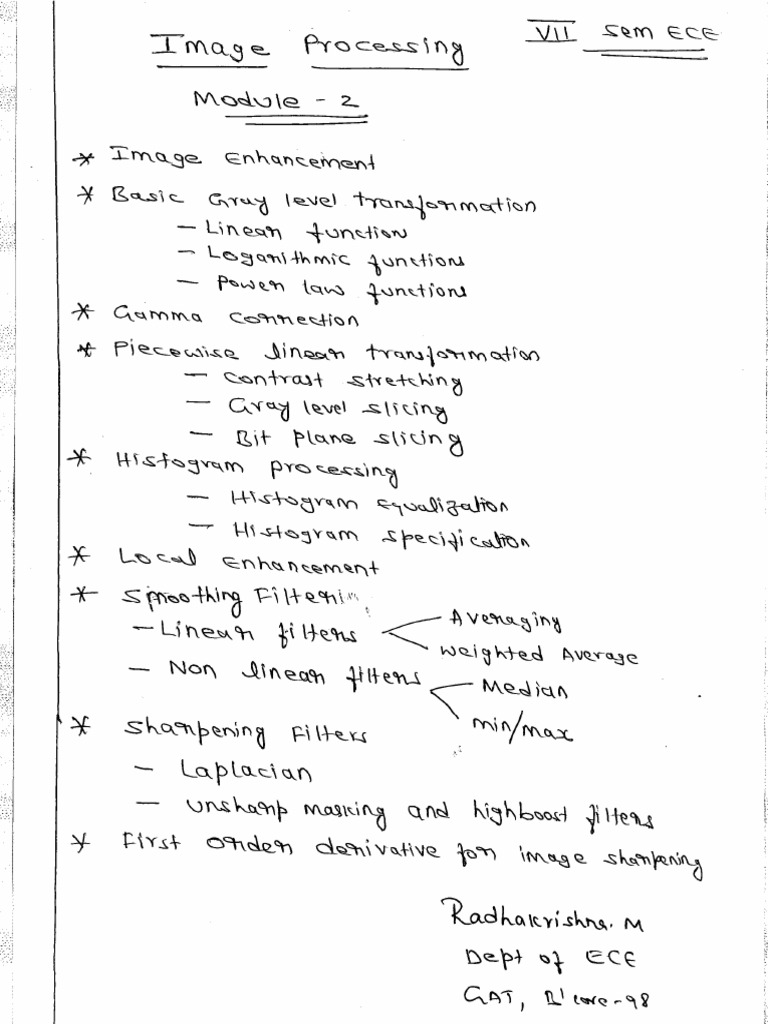 Image Processing VII Sem ECE
Module - 2
* Image Enhancement
* Basic Gray level transformation
- Linear function
- Logarithmic functions
- Power law functions
* Gamma Correction
* Piecewise linear transformation
- Contrast stretching
- Gray level slicing
- Bit plane slicing
* Histogram processing
- Histogram Equalization
- Histogram specification
* Local Enhancement
* Smoothing Filtering
- Linear filters Averaging
Weighted Average
- Non linear filters Median
min/max
* Sharpening Filters
- Laplacian
- Unsharp masking and highboost filters
* First order derivative for image sharpening
Radhakrishna. M
Dept of ECE
GAT, B'lore-98